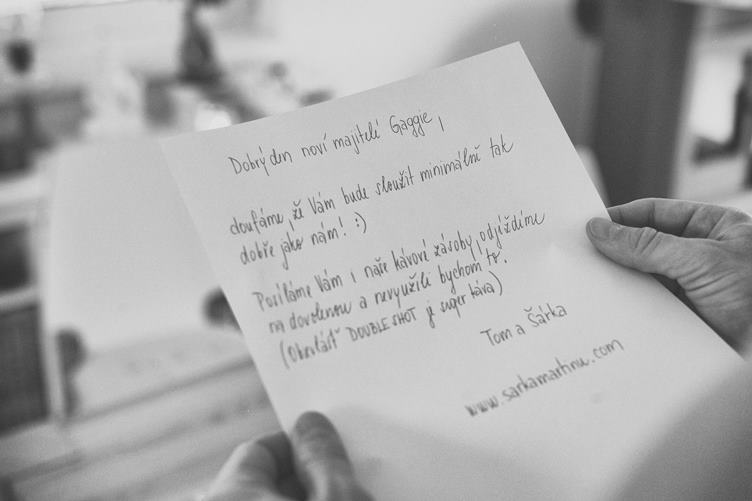 Dobrý den noví majitelé Gaggie,
doufáme, že Vám bude sloužit minimálně tak
dobře jako nám! :)
Posíláme Vám i naše kávové zásoby, odjíždíme
na dovolenou a nevyužili bychom to.
(Obzvlášť DOUBLESHOT je super káva)
Tom a Šárka
www.sarkamartinu.com